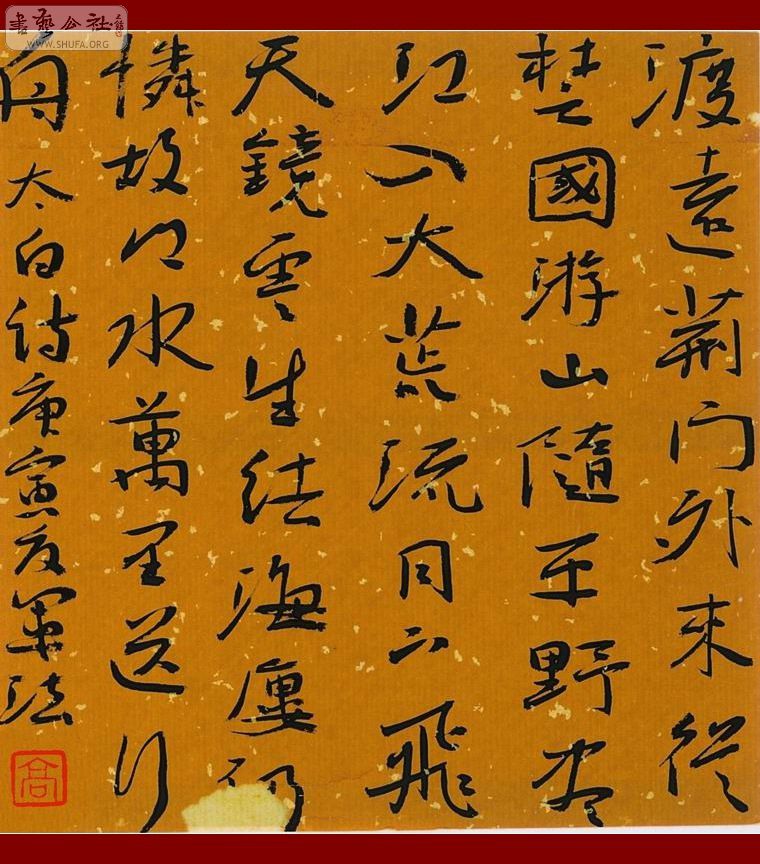 渡遠荆门外来從
楚國游山隨平野尽
江入大荒流月下飛
天鏡雲生结海廔仍
憐故乡水萬里送行
舟太白诗庚寅夏军法
高
書藝公社
WWW.SHUFA.ORG